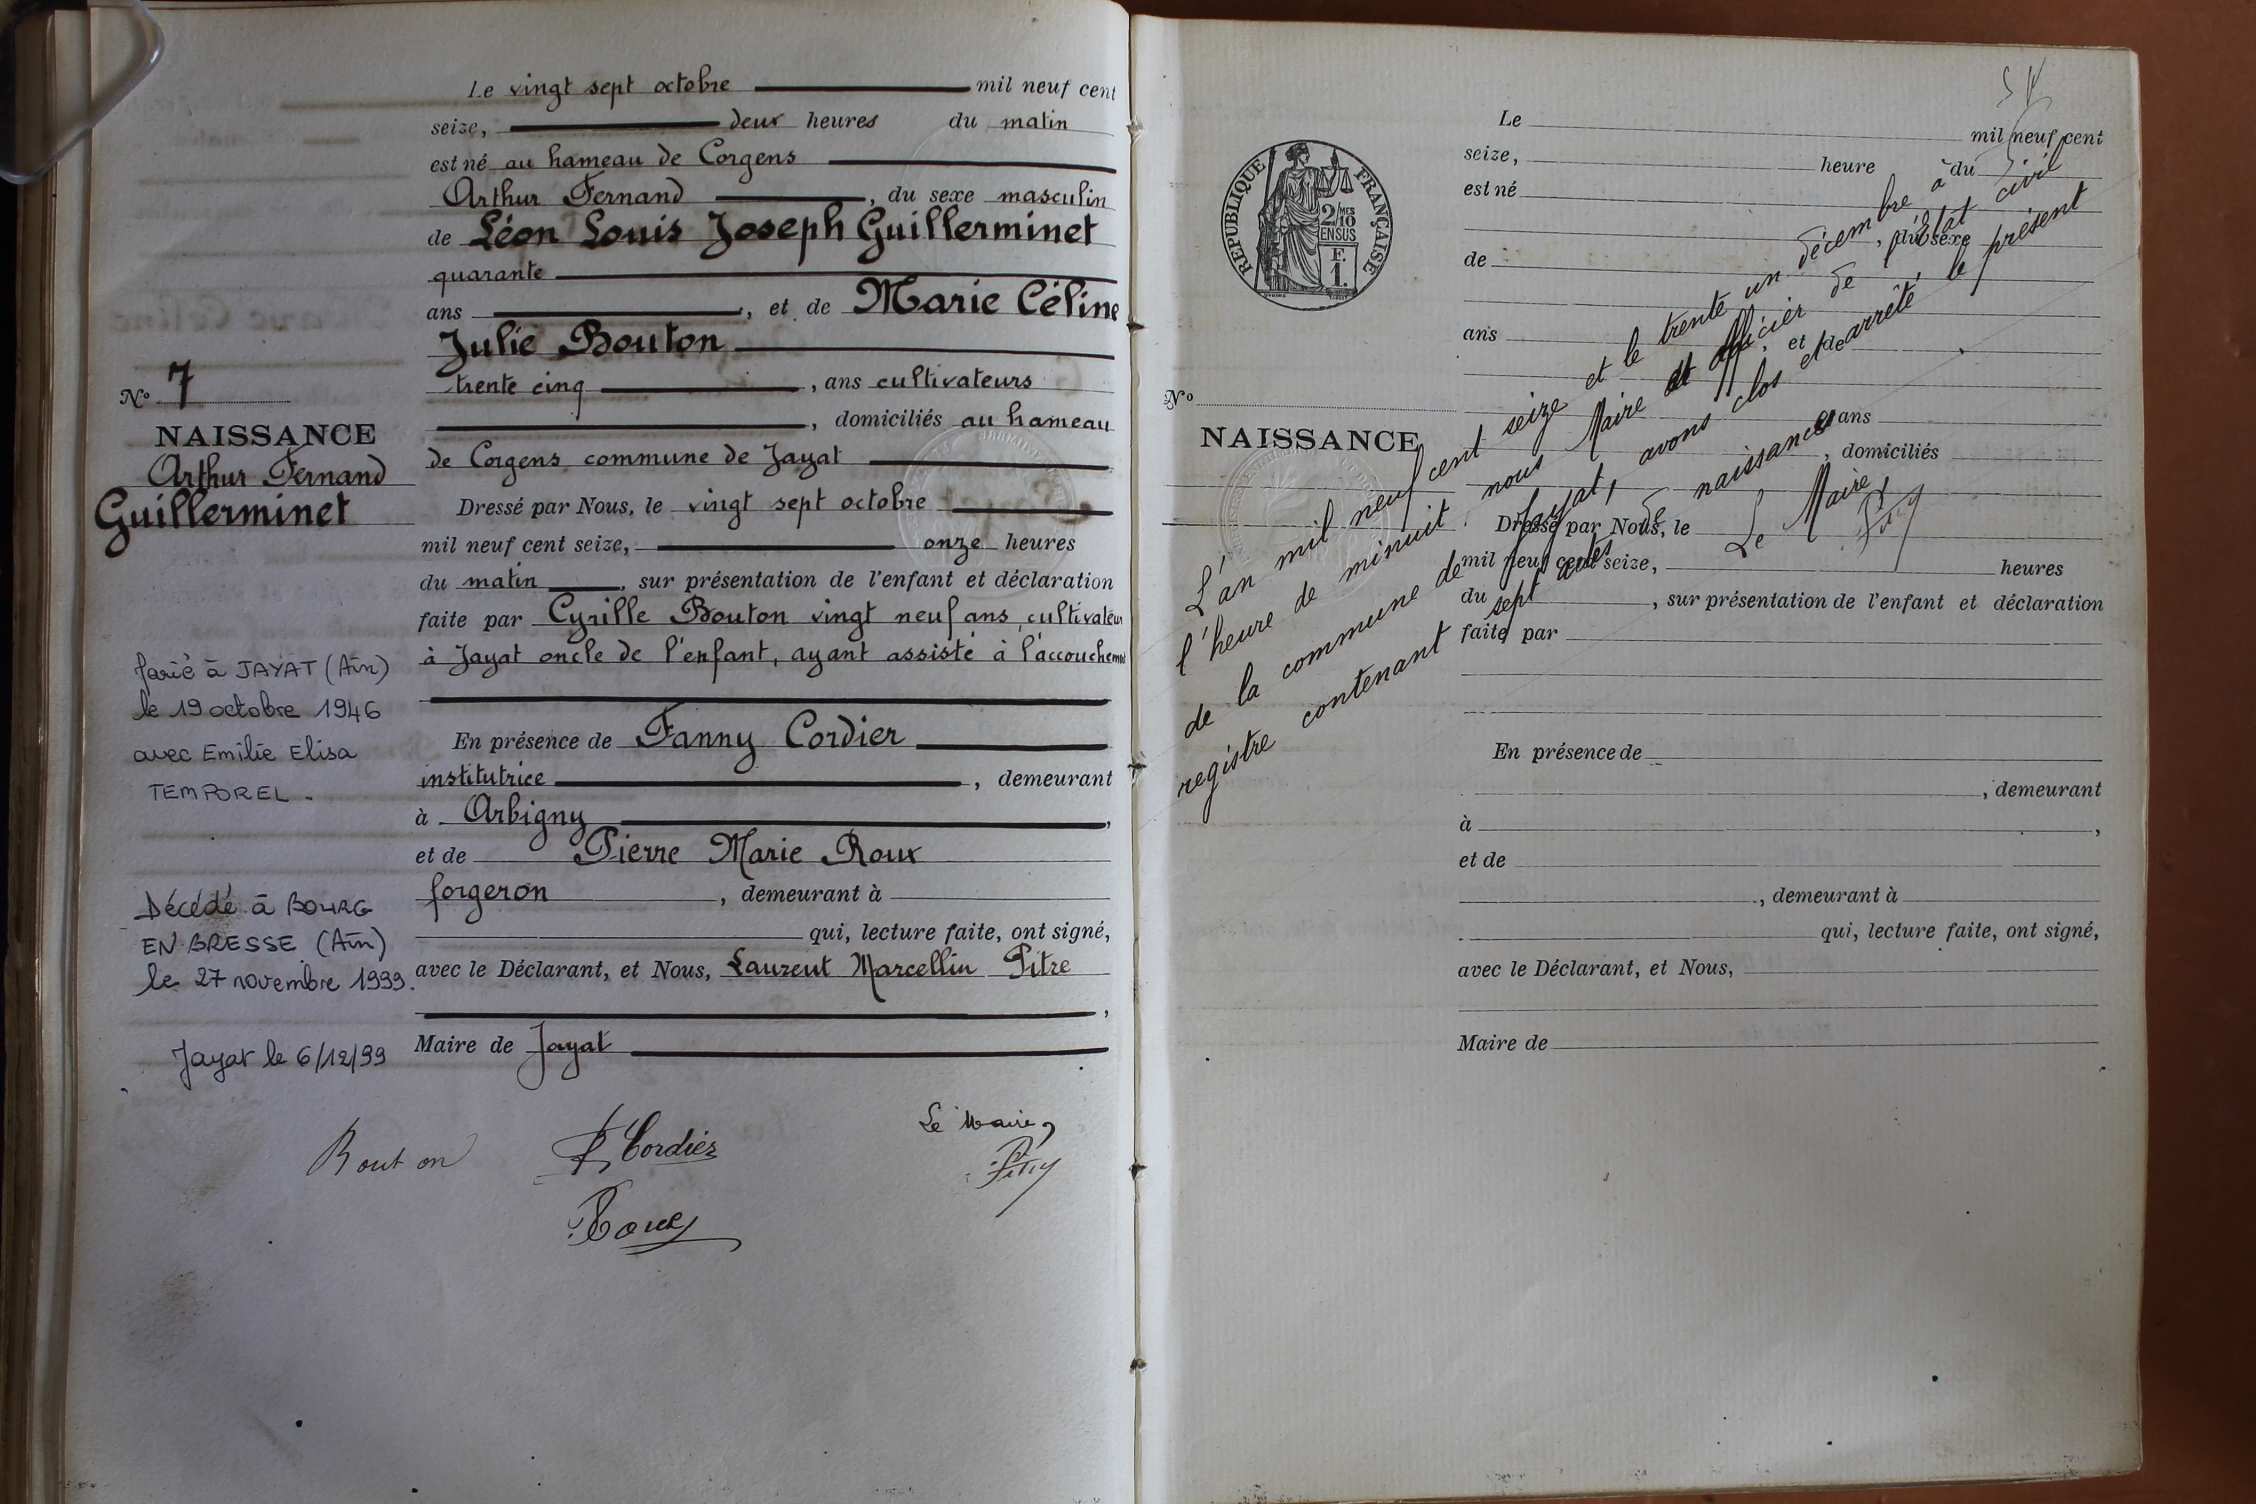 Le vingt sept octobre mil neuf cent
seize, deux heures du matin
est né au hameau de Corgens
Arthur Fernand, du sexe masculin
de Léon Louis Joseph Guillerminet
quarante
ans, et de Marie Céline
Julie Bouton
trente cinq, ans cultivateurs
, domiciliés au hameau
de Corgens commune de Jayat
Dressé par Nous, le vingt sept octobre
mil neuf cent seize, onze heures
du matin, sur présentation de l'enfant et déclaration
faite par Cyrille Bouton vingt neuf ans, cultivateur
à Jayat oncle de l'enfant, ayant assisté à l'accouchement
En présence de Fanny Cordier
institutrice, demeurant
à Arbigny,
et de Pierre Marie Roux
forgeron, demeurant à
qui, lecture faite, ont signé,
avec le Déclarant, et Nous, Laurent Marcellin Pitre
,
Maire de Jayat
Bouton
Cordier
Le Maire,
Roux
No 7
NAISSANCE
Arthur Fernand
Guillerminet
Marié à JAYAT (Ain)
le 19 octobre 1946
avec Emilie Elisa
TEMPOREL.
Décédé à BOURG
EN BRESSE (Ain)
le 27 novembre 1999.
Jayat le 6/12/99
RÉPUBLIQUE FRANÇAISE
2/MES
10
EN SUS
F.
1.
No
NAISSANCE
Le mil neuf cent
seize, heure du
est né
, du sexe
de
ans, et de
ans
, domiciliés
Dressé par Nous, le
mil neuf cent seize, heures
du, sur présentation de l'enfant et déclaration
faite par
En présence de
, demeurant
à,
et de
, demeurant à
qui, lecture faite, ont signé,
avec le Déclarant, et Nous,
Maire de
L'an mil neuf cent seize et le trente un décembre à
l'heure de minuit nous Maire et officier de l'état civil
de la commune de Jayat, avons clos et arrêté, le présent
registre contenant sept actes de naissances
Le Maire,